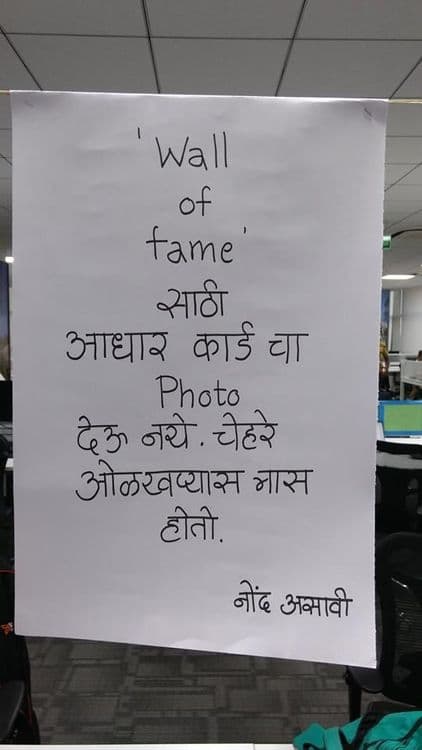 'Wall
of
fame'
साठी
आधार कार्ड चा
Photo
देऊ नये. चेहरे
ओळखण्यास त्रास
होतो.
नोंद असावी